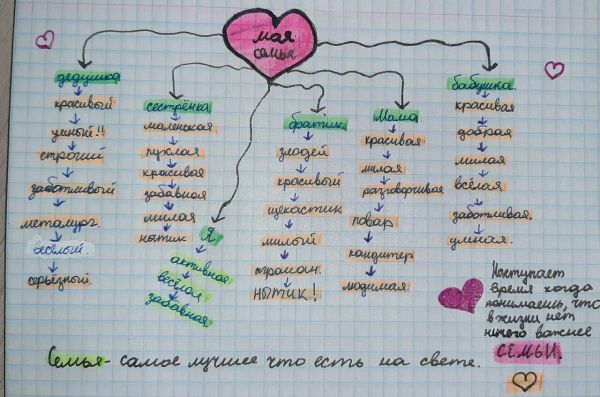 моя
семья
дедушка
красивый
умный!!
строгий
заботливый
металург
весёлый.
серьёзный.
сестрёнка
маленькая
пухлая
красивая
забавная
милая
нытик
Я
активное
весёлая
забавная.
братик
злодей
красивый
щекастик
милый
нытик!
Мама
красивая
милая
разговорчивая
повар
кондитер
людимая.
бабушка.
красивая
добрая
милая
весёлая
заботливая.
умная.
Наступает
время когда
понимаешь, что
в жизни нет
ничего важнее
СЕМЬИ.
Семья - самое лучшее что есть на свете.